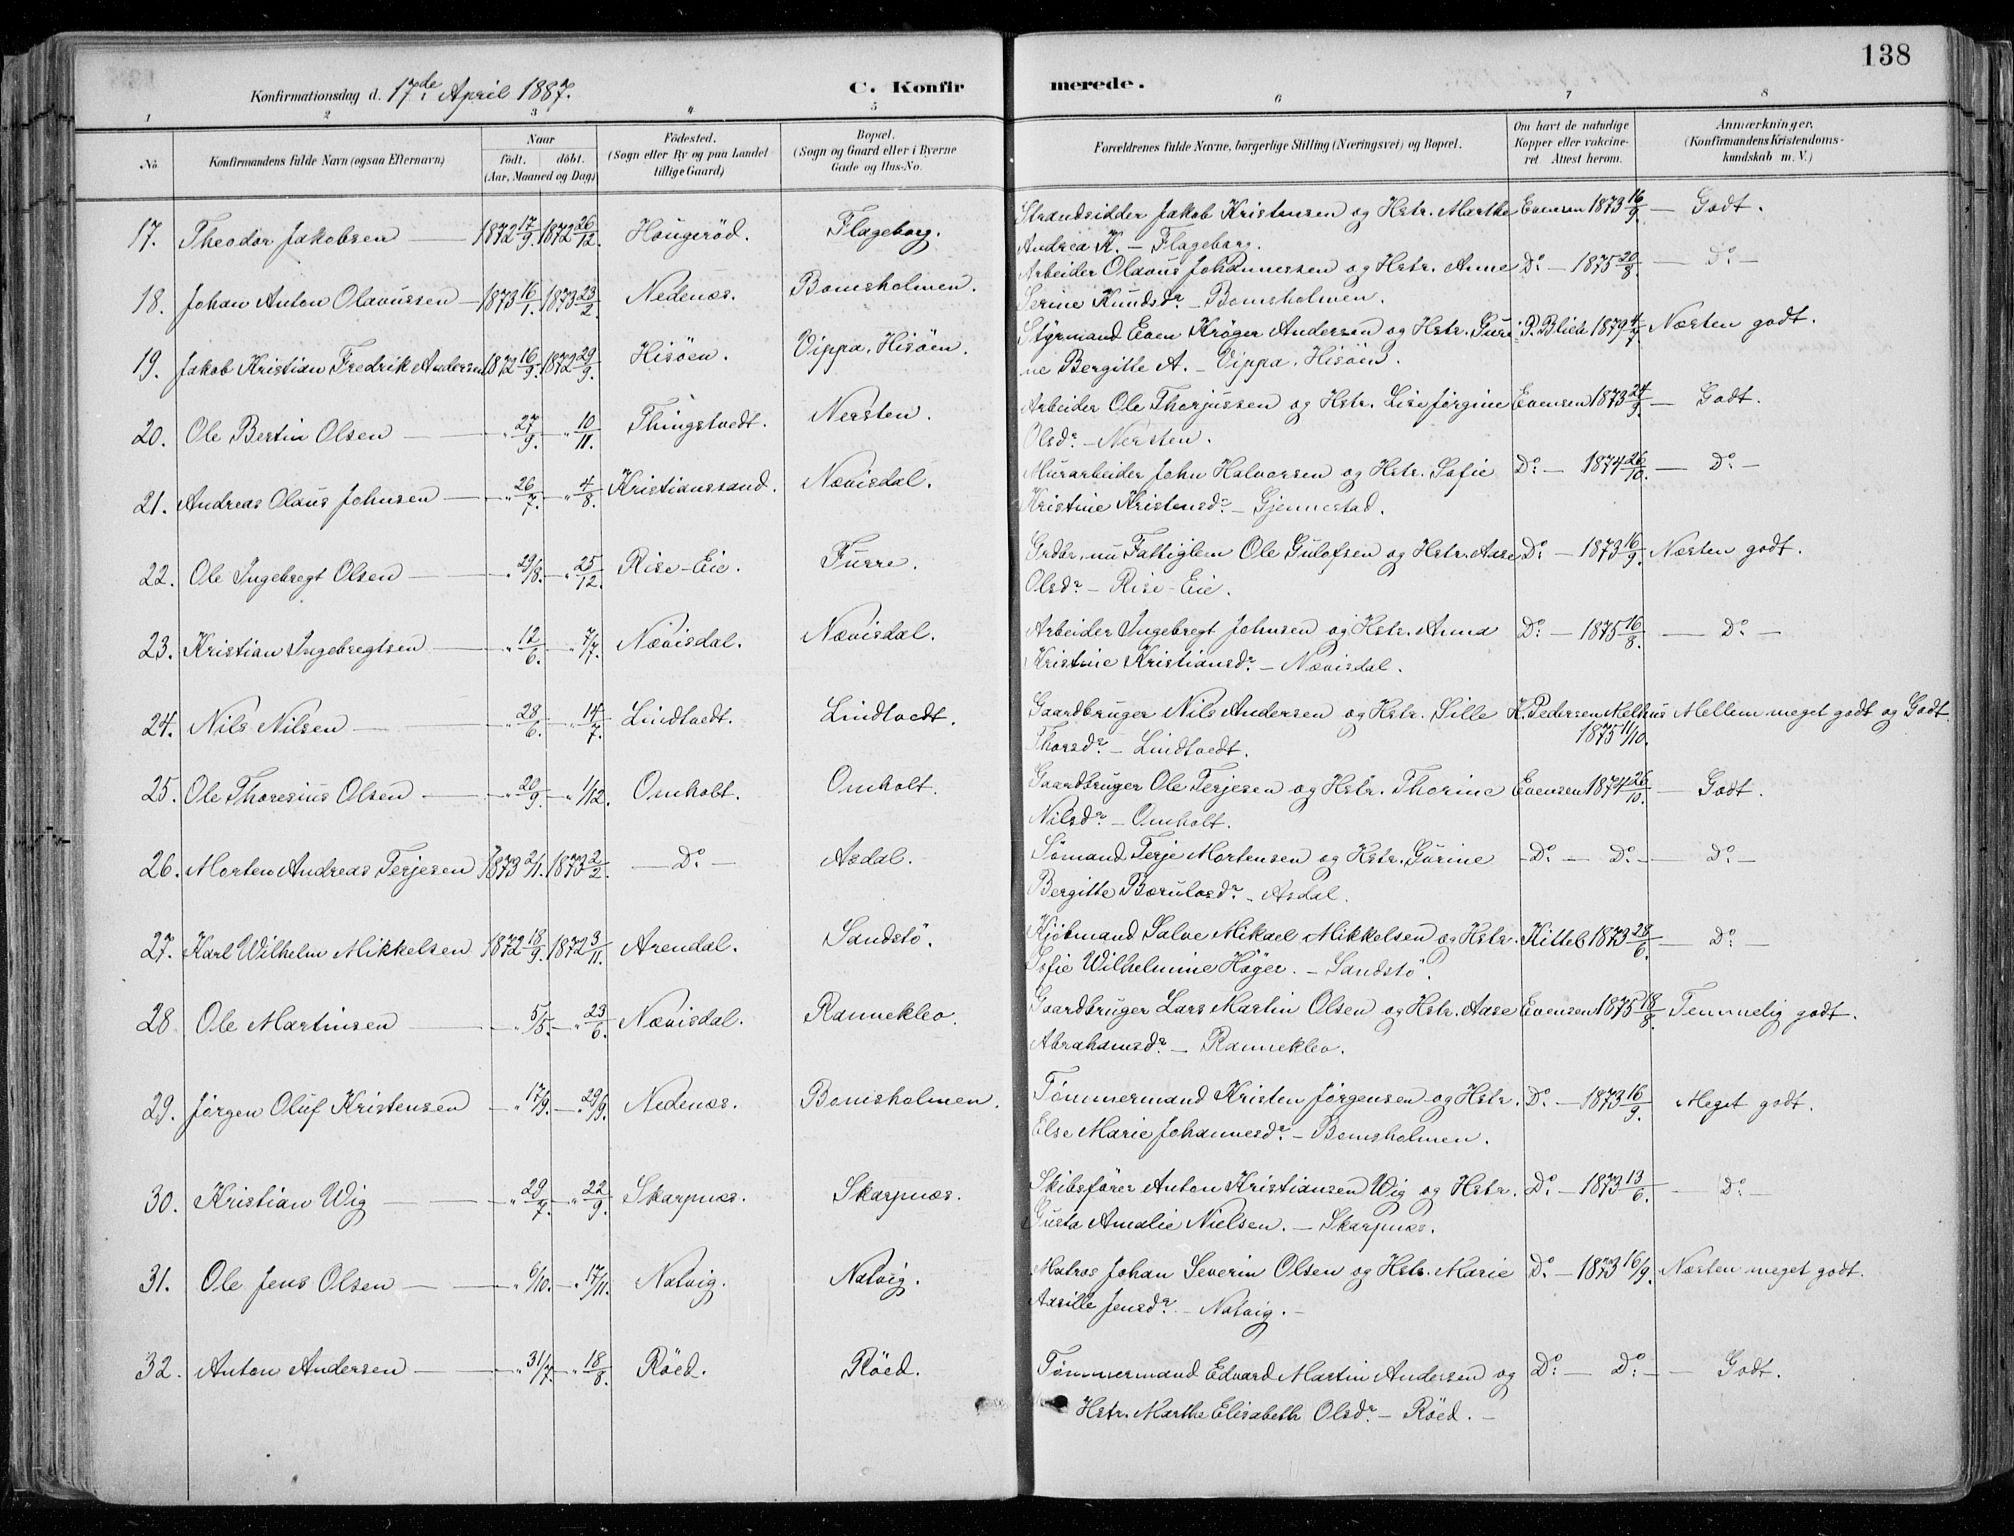 138
Konfirmationsdag d. 17de April 1887. C. Konfirmerede.
1 2 3 4 5 6 7 8
No. Konfirmandens fulde Navn (ogsaa Efternavn) Naar födt. döbt. (Aar, Maaned og Dag) Födested. (Sogn eller By og paa Landet tillige Gaard) Bopæl. (Sogn og Gaard eller i Byerne Gade og Hus-No. Forældrenes fulde Navne, borgerlige Stilling (Næringsvei) og Bopæl. Om havt de naturlige Kopper eller vaksineret Attest herom. Anmærkninger, (Konfirmandens Kristendomskundskab m. V.)
17. Theodor Jakobsen — 1872 17/9. 1872 26/12. Hougeröd. Flageborg. Strandsidder Jakob Kristensen og Hstr. Marthe Evensen 1873 16/9. — Godt.
Andrea K. — Flageborg.
18. Johan Anton Olavussen — 1873 16/1. 1873 23/2. Nedenæs. Bomsholmen. Arbeider Olavus Johannessen og Hstr. Anne Do. — 1875 20/8. — Do. —
Serine Knudsdr. — Bomsholmen.
19. Jakob Kristian Fredrik Andersen 1872 16/9. 1872 29/9. Hisöen. Vippa, Hisöen. Styrmand Even Kröger Andersen og Hstr. Guri- P. Blich 1879 4/7 Næsten godt.
ne Bergitte A. — Vippa, Hisöen.
20. Ole Bertin Olsen — " 27/9. — " 10/11. Thingstvedt. Nersten. Arbeider Ole Thorjussen og Hstr. Lise Jörgine Evensen 1873 24/9. — Godt.
Olsdr. — Nersten.
21. Andreas Olaus Johnsen — " 26/7. — " 4/8. Kristianssand. Nævisdal. Murarbeider John Halvorsen og Hstr. Sofie Do. — 1874 26/10. — Do. —
Kristine Kristensdr. — Gjennestad.
22. Ole Ingebregt Olsen — " 29/8. — " 25/12. Rise-Eie. Furre. Grdbr., nu Fattiglem Ole Gulofsen og Hstr. Aase Do. — 1873 16/9. Næsten godt.
Olsdr. — Rise-Eie.
23. Kristian Ingebregtsen — " 12/6. — " 7/7. Nævisdal. Nævisdal. Arbeider Ingebregt Johnsen og Hstr. Anna Do. — 1875 16/8. — Do. —
Kristine Kristiansdr. — Nævisdal.
24. Nils Nilsen — " 28/6. — " 14/7. Lindtvedt. Lindtvedt. Gaardbruger Nils Andersen og Hstr. Sille K. Pedersen Melhus Mellem meget godt og Godt.
Thorsdr. — Lindtvedt. 1875 11/10.
25. Ole Thoresius Olsen — " 20/9. — " 1/12. Omholt. Omholt. Gaardbruger Ole Terjesen og Hstr. Thorine Evensen 1874 26/10. — Godt.
Nilsdr. — Omholt.
26. Morten Andreas Terjesen 1873 2/1. 1873 2/2. — Do — Asdal. Sömand Terje Mortensen og Hstr. Gurine — Do. — Do. — — Do. —
Bergitte Bærulvsdr. — Asdal.
27. Karl Wilhelm Mikkelsen 1872 18/9. 1872 3/11. Arendal. Sandstö. Kjöbmand Salve Mikael Mikkelsen og Hstr. Kittel 1873 28/6. — Do. —
Sofie Wilhelmine Höger. — Sandstö.
28 Ole Martinsen — " 5/5. — " 23/6. Nævisdal. Rannekleo. Gaardbruger Lars Martin Olsen og Hstr. Aase Evensen 1875 18/8. Temmelig godt.
Abrahamsdr. — Rannekleo.
29. Jörgen Oluf Kristensen — " 17/9. — " 29/9. Nedenæs. Bomsholmen. Tömmermand Kristen Jörgensen og Hstr. Do. — 1873 16/9. Meget godt.
Else Marie Johannesdr. — Bomsholmen.
30. Kristian Wig — " 29/7. — " 22/9. Skarpnæs. Skarpnæs. Skibsförer Anton Kristiansen Wig og Hstr. Do. — 1873 13/6. — Do. —
Gusta Amalie Nielsen. — Skarpnæs.
31. Ole Jens Olsen — " 6/10. — " 17/11. Natvig. Natvig. Matros Johan Severin Olsen og Hstr. Marie Do. — 1873 16/9. Næsten meget godt.
Axille Jensdr. — Natvig. —
32. Anton Andersen — " 31/7. — " 18/8. Röed. Röed. Tömmermand Edvard Martin Andersen og Do. — Do. — — Godt.
Hstr. Marthe Elisabeth Olsdr. — Röed. —